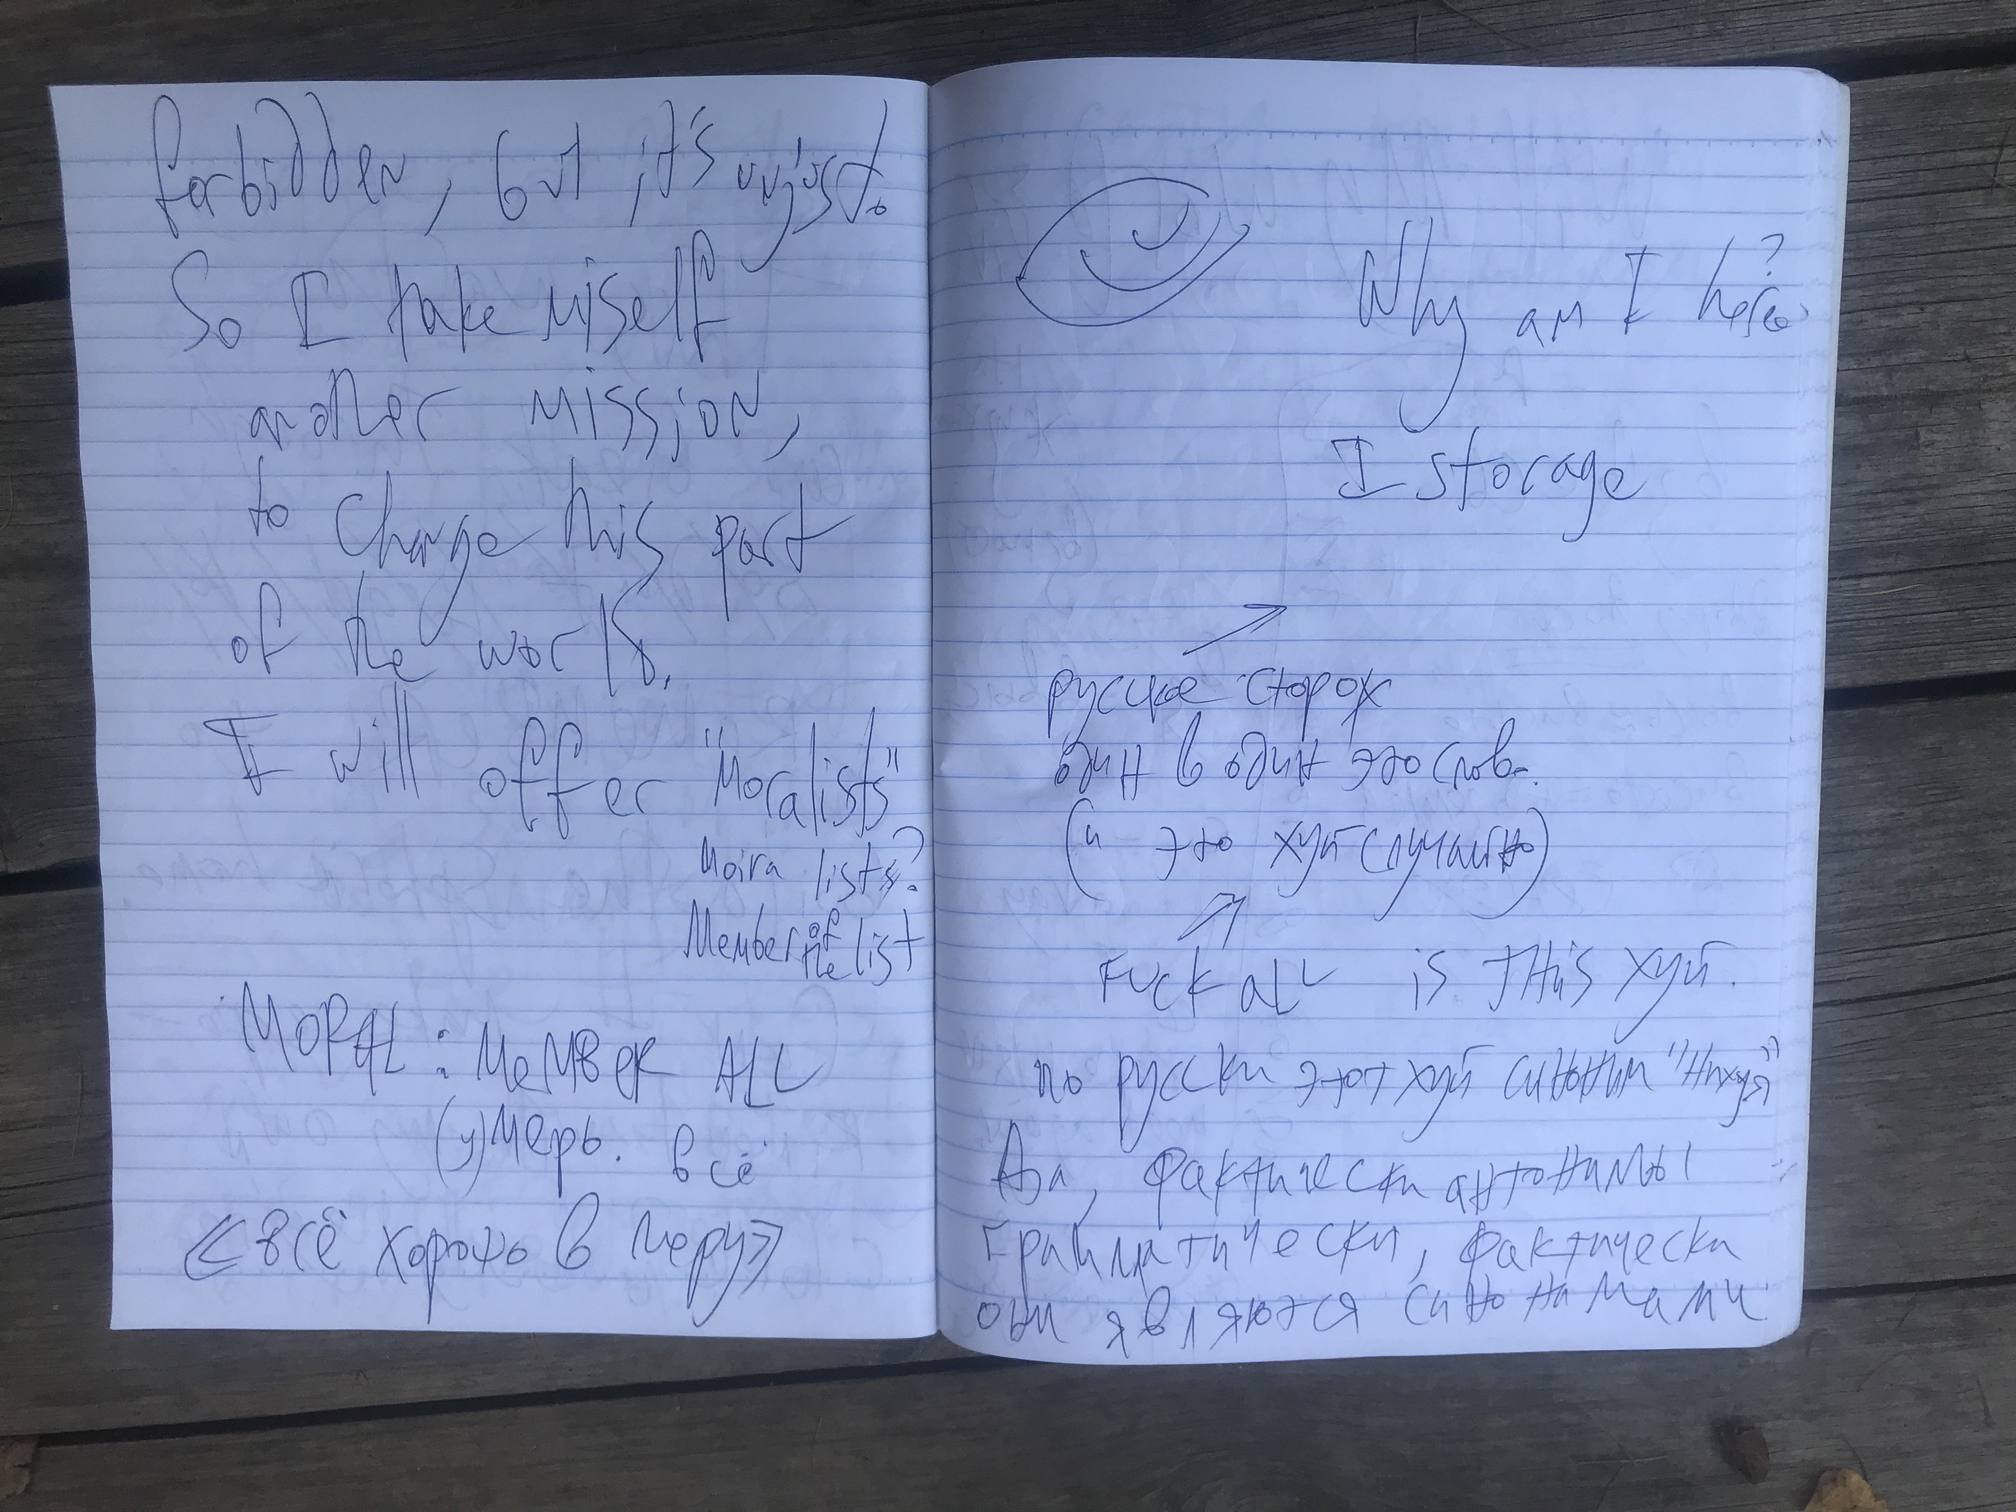 forbidden, but it's unjust.
So I take miself
another mission,
to change this part
of the world.
I will offer "Moralists"
Moira lists?
Member of the list
MOРAL: MeMBeR ALL
(у)мерь. всё
«всё хорошо в меру»
Why am I here?
I storage
русское сторож
один в один это слово.
(и это хуй случайно)
FUCK aLL is THis хуй.
по русски этот хуй синоним "нихуя"
Да, фактически антонимы
грамматически, фактически
они являются синонимами